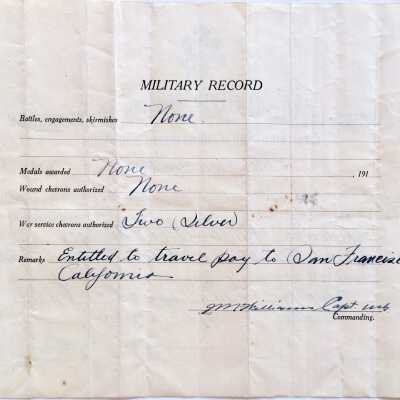 MILITARY RECORD
Battles, engagements, skirmishes None.
Medals awarded None , 191
Wound chevrons authorized None
War service chevrons authorized Two Silver
Remarks Entitled to travel pay to San Francisc
California
Williams Capt.
Commanding.